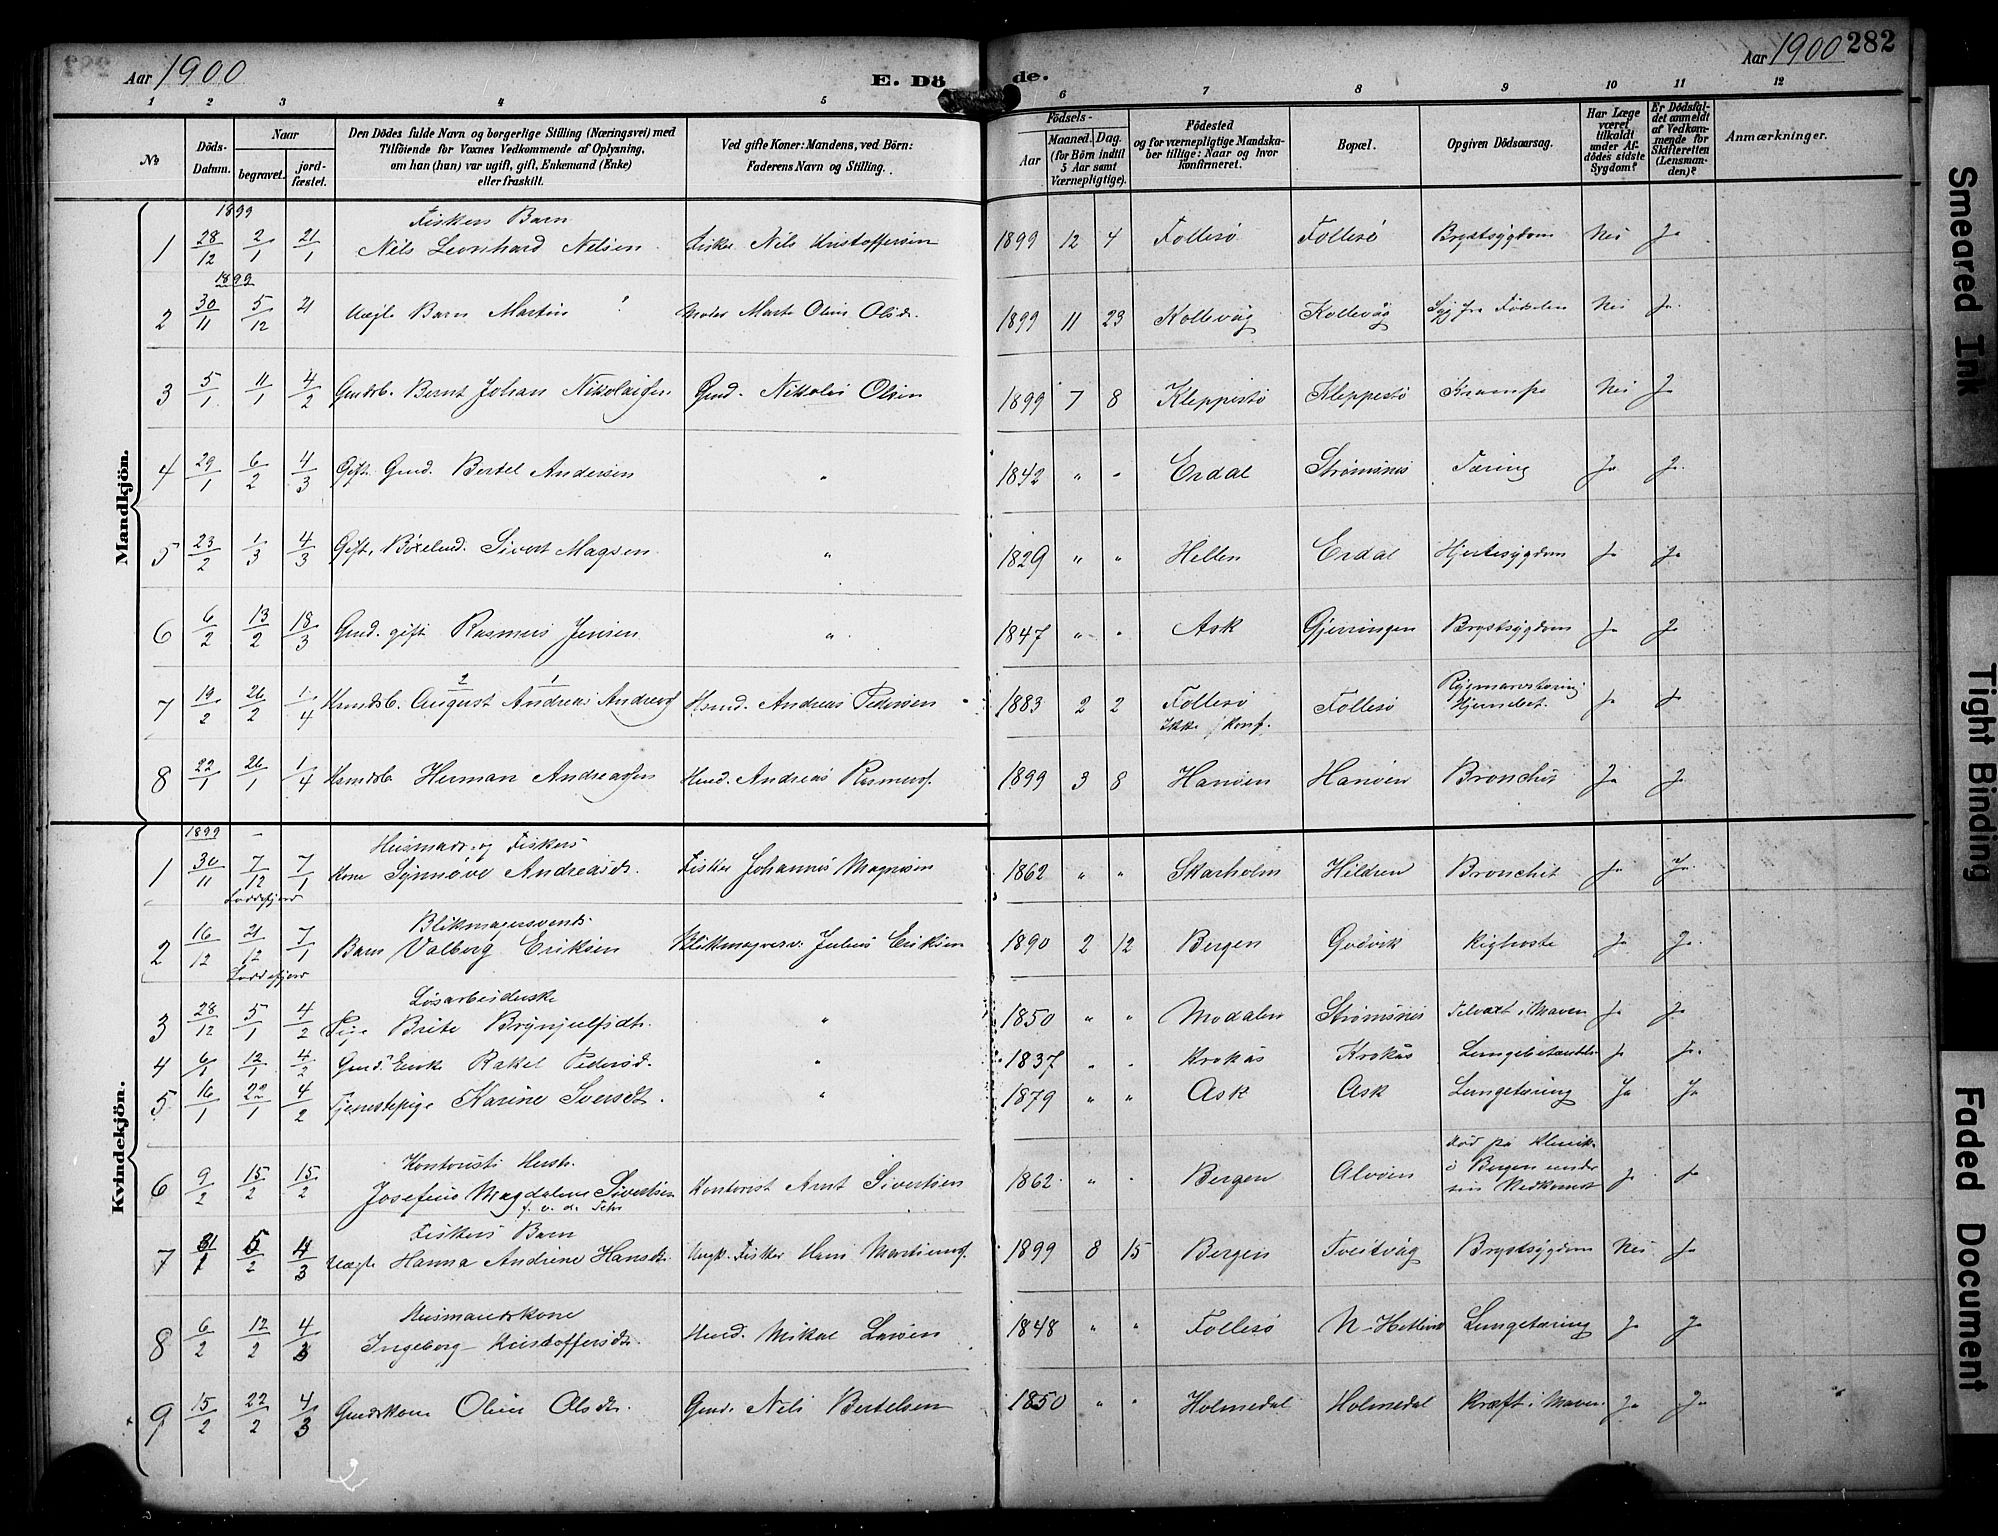 282
Aar 1900
E. Dö de.
Aar 1900 282
1 2 3 4 5 6 7 8 9 10 11 12
No
Döds-Datum.
Naar
begravet.
jord-fæstet.
Den Dödes fulde Navn og borgerlige Stilling (Næringsvei) med
Tilföiende for Voxnes Vedkommende af Oplysning,
om han (hun) var ugift, gift, Enkemand (Enke)
eller fraskilt.
Ved gifte Koner: Mandens, ved Börn:
Faderens Navn og Stilling.
Födsels-
Aar
Maaned. Dag.
(for Börn indtil
5 Aar samt
Værnepligtige).
Födested
og for værnepligtige Mandska-
ber tillige: Naar og hvor
konfirmeret.
Bopæl.
Opgiven Dödsaarsag.
Har Læge
været
tilkaldt
under Af-
dödes sidste
Sygdom?
Er Dödsfal-
det anmeldt
af Vedkom-
mende for
Skifteretten
(Lensman-
den)?
Anmærkninger.
Mandkjön.
1899 Fiskers Barn
1 28/12 2/1 21/1 Nils Leonhard Nelsen Fisker Nils Kristoffersen 1899 12 4 Follesø Follesø Brystsygdom Nei Ja
1899
2 30/11 5/12 21 Uægte Barn Martin Moder Marte Oline Olsdr. 1899 11 23 Kollevåg Kollevåg Syg fra Fødselen Nei Ja.
3 5/1 11/1 4/2 Gmdsb. Bernt Johan Nikolaisen Gmd. Nikolai Olsen 1899 7 8 Kleppestø Kleppestø Krampe Nei Ja
4 29/1 6/2 4/3 Gift. Gmd. Bertel Andersen " 1842 " " Erdal Strømsnes Tæring Ja Ja.
5 23/2 1/3 4/3 Gift, Sivert Magsen " 1829 " " Hellen Erdal Hjertesygdom Ja Ja
6 6/2 13/2 18/3 Gmd. gift Rasmus Jensen " 1847 " " Ask Gjerringen Brystsygdom Ja Ja
7 19/2 26/2 1/4 Hsmdsb. August 2 Andreas 1 Andreas Hsmd. Andreas Pedersen 1883 2 2 Follesø Follesø Rygmarvstæring Ja Ja
Ikke konf. Hjernebet.
8 22/1 26/1 1/4 Hsmdsb Herman Andreassen Hmd. Andreas Rasmuss. 1899 3 8 Hanøen Hanøen Bronchit Ja Ja.
Kvindekjön.
1899 - Husmads- og Fiskers
1 30/11 7/12 7/1 Kone Synnøve Andreasdr. Fisker Johannes Magnesen 1862 " " Skarholm Hildren Bronchit Ja Ja.
Loddefjord
Blikmagersvends
2 16/12 21/12 7/1 Barn Valborg Eriksen Blikmagersv. Julius Eriksen 1890 2 12 Bergen Godvik Kighoste Ja Ja.
Loddefjord
Løsarbeiderske
3 28/12 5/1 4/2 Pige Brite Brynjulfsdtr. " 1850 " " Modalen Strømsnes Tilvext i Maven Ja Ja
4 6/1 12/1 4/2 Gmds Enke Rakel Pedersd. " 1837 " " Krokås Krokås Lungebetændelse Ja Ja.
5 16/1 22/1 4/2 Tjenestepige Karine Iversdt. " 1879 " " Ask Ask Lungetæring Ja Ja
Kontorists Hustr. død på Klinik
6 9/2 15/2 15/2 Josefine Magdalene Sivertsen Kontorist Arnt Sivertsen 1862 " " Bergen Alvøen i Bergen under Ja Ja
f. v. d.
Fiskers Barn
7 31/1 5/2 4/3 Uægte Hanna Andrine Hansdtr. Ungk. Fisker Hans Martinus. 1899 8 15 Bergen Tveitvåg Brystsygdom Nei Ja
Husmandskone
8 6/2 12/2 4/3 Ingeborg Kristoffersdtr. Hmd. Mikal Larsen 1848 " " Follesø N-Hetlevik Lungetæring Ja Ja
9 15/2 22/2 4/3 Gmdskone Oline Olsdtr. Gmd. Nils Bertelsen 1850 " " Holmedal Holmedal Kræft i Maven Ja Ja
Smeared Ink
Tight Binding
Faded Document